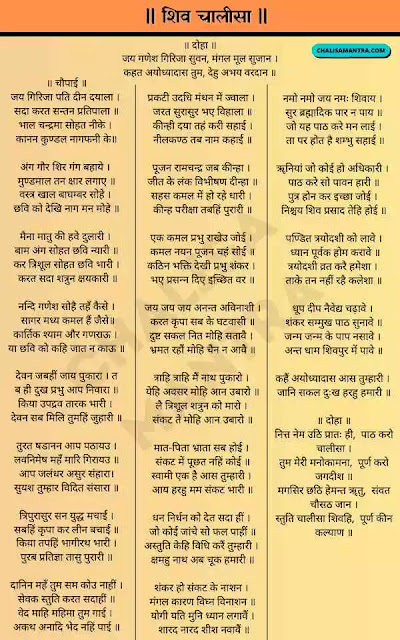 ॥ शिव चालीसा ॥
CHALISAMANTRA.COM
॥ दोहा ॥
जय गणेश गिरिजा सुवन, मंगल मूल सुजान ।
कहत अयोध्यादास तुम, देहु अभय वरदान ॥
॥ चौपाई ॥
जय गिरिजा पति दीन दयाला ।
सदा करत सन्तन प्रतिपाला ॥
भाल चन्द्रमा सोहत नीके ।
कानन कुण्डल नागफनी के॥
अंग गौर शिर गंग बहाये ।
मुण्डमाल तन क्षार लगाए ॥
वस्त्र खाल बाघम्बर सोहे ।
छवि को देखि नाग मन मोहे ॥
मैना मातु की हवे दुलारी ।
बाम अंग सोहत छवि न्यारी ॥
कर त्रिशूल सोहत छवि भारी ।
करत सदा शत्रुन क्षयकारी ॥
नन्दि गणेश सोहै तहँ कैसे ।
सागर मध्य कमल हैं जैसे॥
कार्तिक श्याम और गणराऊ ।
या छवि को कहि जात न काऊ ॥
देवन जबहीं जाय पुकारा । त
ब ही दुख प्रभु आप निवारा ॥
किया उपद्रव तारक भारी ।
देवन सब मिलि तुमहिं जुहारी ॥
तुरत षडानन आप पठायउ ।
लवनिमेष महँ मारि गिरायउ ॥
आप जलंधर असुर संहारा ।
सुयश तुम्हार विदित संसारा ॥
त्रिपुरासुर सन युद्ध मचाई ।
सबहिं कृपा कर लीन बचाई ॥
किया तपहिं भागीरथ भारी ।
पुरब प्रतिज्ञा तासु पुरारी ॥
दानिन महँ तुम सम कोउ नाहीं ।
सेवक स्तुति करत सदाहीं ॥
वेद माहि महिमा तुम गाई ।
अकथ अनादि भेद नहिं पाई ॥
प्रकटी उदधि मंथन में ज्वाला ।
जरत सुरासुर भए विहाला ॥
कीन्ही दया तहं करी सहाई ।
नीलकण्ठ तब नाम कहाई ॥
पूजन रामचन्द्र जब कीन्हा ।
जीत के लंक विभीषण दीन्हा ॥
सहस कमल में हो रहे धारी ।
कीन्ह परीक्षा तबहिं पुरारी ॥
एक कमल प्रभु राखेउ जोई ।
कमल नयन पूजन चहं सोई ॥
कठिन भक्ति देखी प्रभु शंकर ।
भए प्रसन्न दिए इच्छित वर ॥
जय जय जय अनन्त अविनाशी ।
करत कृपा सब के घटवासी ॥
दुष्ट सकल नित मोहि सतावै ।
भ्रमत रहौं मोहि चैन न आवै ॥
त्राहि त्राहि मैं नाथ पुकारो ।
येहि अवसर मोहि आन उबारो ॥
लै त्रिशूल शत्रुन को मारो ।
संकट ते मोहि आन उबारो ॥
मात-पिता भ्राता सब होई ।
संकट में पूछत नहिं कोई ॥
स्वामी एक है आस तुम्हारी ।
आय हरहु मम संकट भारी ॥
धन निर्धन को देत सदा हीं ।
जो कोई जांचे सो फल पाहीं ॥
अस्तुति केहि विधि करैं तुम्हारी ।
क्षमहु नाथ अब चूक हमारी ॥
शंकर हो संकट के नाशन ।
मंगल कारण विघ्न विनाशन ॥
योगी यति मुनि ध्यान लगावैं ।
शारद नारद शीश नवावैं ॥
नमो नमो जय नमः शिवाय ।
सुर ब्रह्मादिक पार न पाय ॥
जो यह पाठ करे मन लाई ।
ता पर होत है शम्भु सहाई ॥
ऋनियां जो कोई हो अधिकारी ।
पाठ करे सो पावन हारी ॥
पुत्र होन कर इच्छा जोई ।
निश्चय शिव प्रसाद तेहि होई ॥
पण्डित त्रयोदशी को लावे ।
ध्यान पूर्वक होम करावे ॥
त्रयोदशी व्रत करै हमेशा ।
ताके तन नहीं रहै कलेशा ॥
धूप दीप नैवेद्य चढ़ावे ।
शंकर सम्मुख पाठ सुनावे ॥
जन्म जन्म के पाप नसावे ।
अन्त धाम शिवपुर में पावे ॥
कहैं अयोध्यादास आस तुम्हारी ।
जानि सकल दुःख हरहु हमारी ॥
॥ दोहा ॥
नित्त नेम उठि प्रातः ही, पाठ करो
चालीसा ।
तुम मेरी मनोकामना, पूर्ण करो
जगदीश ॥
मगसिर छठि हेमन्त ऋतु, संवत
चौसठ जान ।
स्तुति चालीसा शिवहि, पूर्ण कीन
कल्याण ॥
CHALISA MANTRA